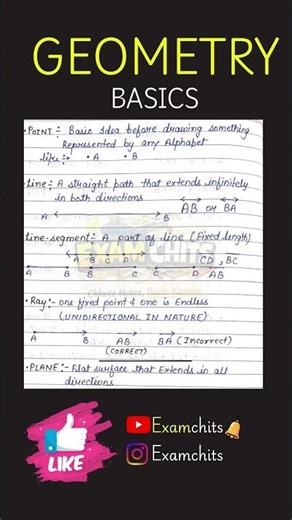 GEOMETRY
BASICS
• POINT :- Basic Idea before drawing something
Represented by any Alphabet
like :- • A • B
• Line :- A straight path that extends infinitely
in both directions
AB or BA
A B
Line-segment :- A part of line (Fixed length)
A B C D CD, BC
A B B C C D AB
EXAMCHITS
• Ray :- one fixed point & one is Endless
(UNIDIRECTIONAL IN NATURE)
A B AB BA (Incorrect)
(CORRECT)
• PLANE :- Flat surface that Extends in all
directions
LIKE
Examchits
Examchits